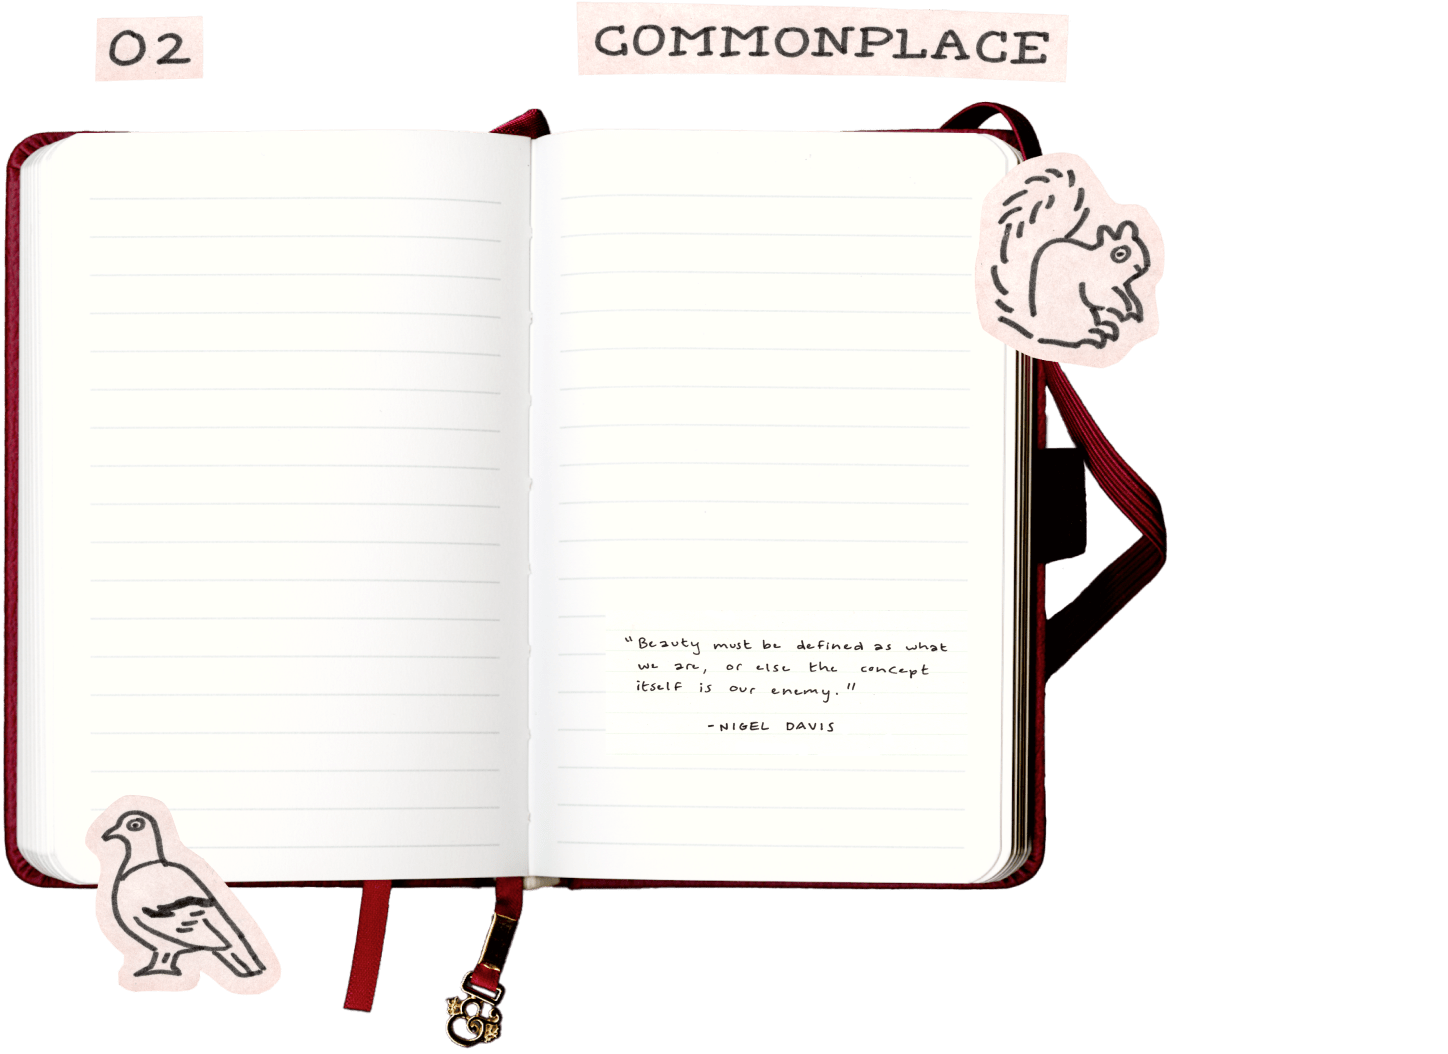 02
COMMONPLACE
"Beauty must be defined as what
we are, or else the concept
itself is our enemy."
-NIGEL DAVIS